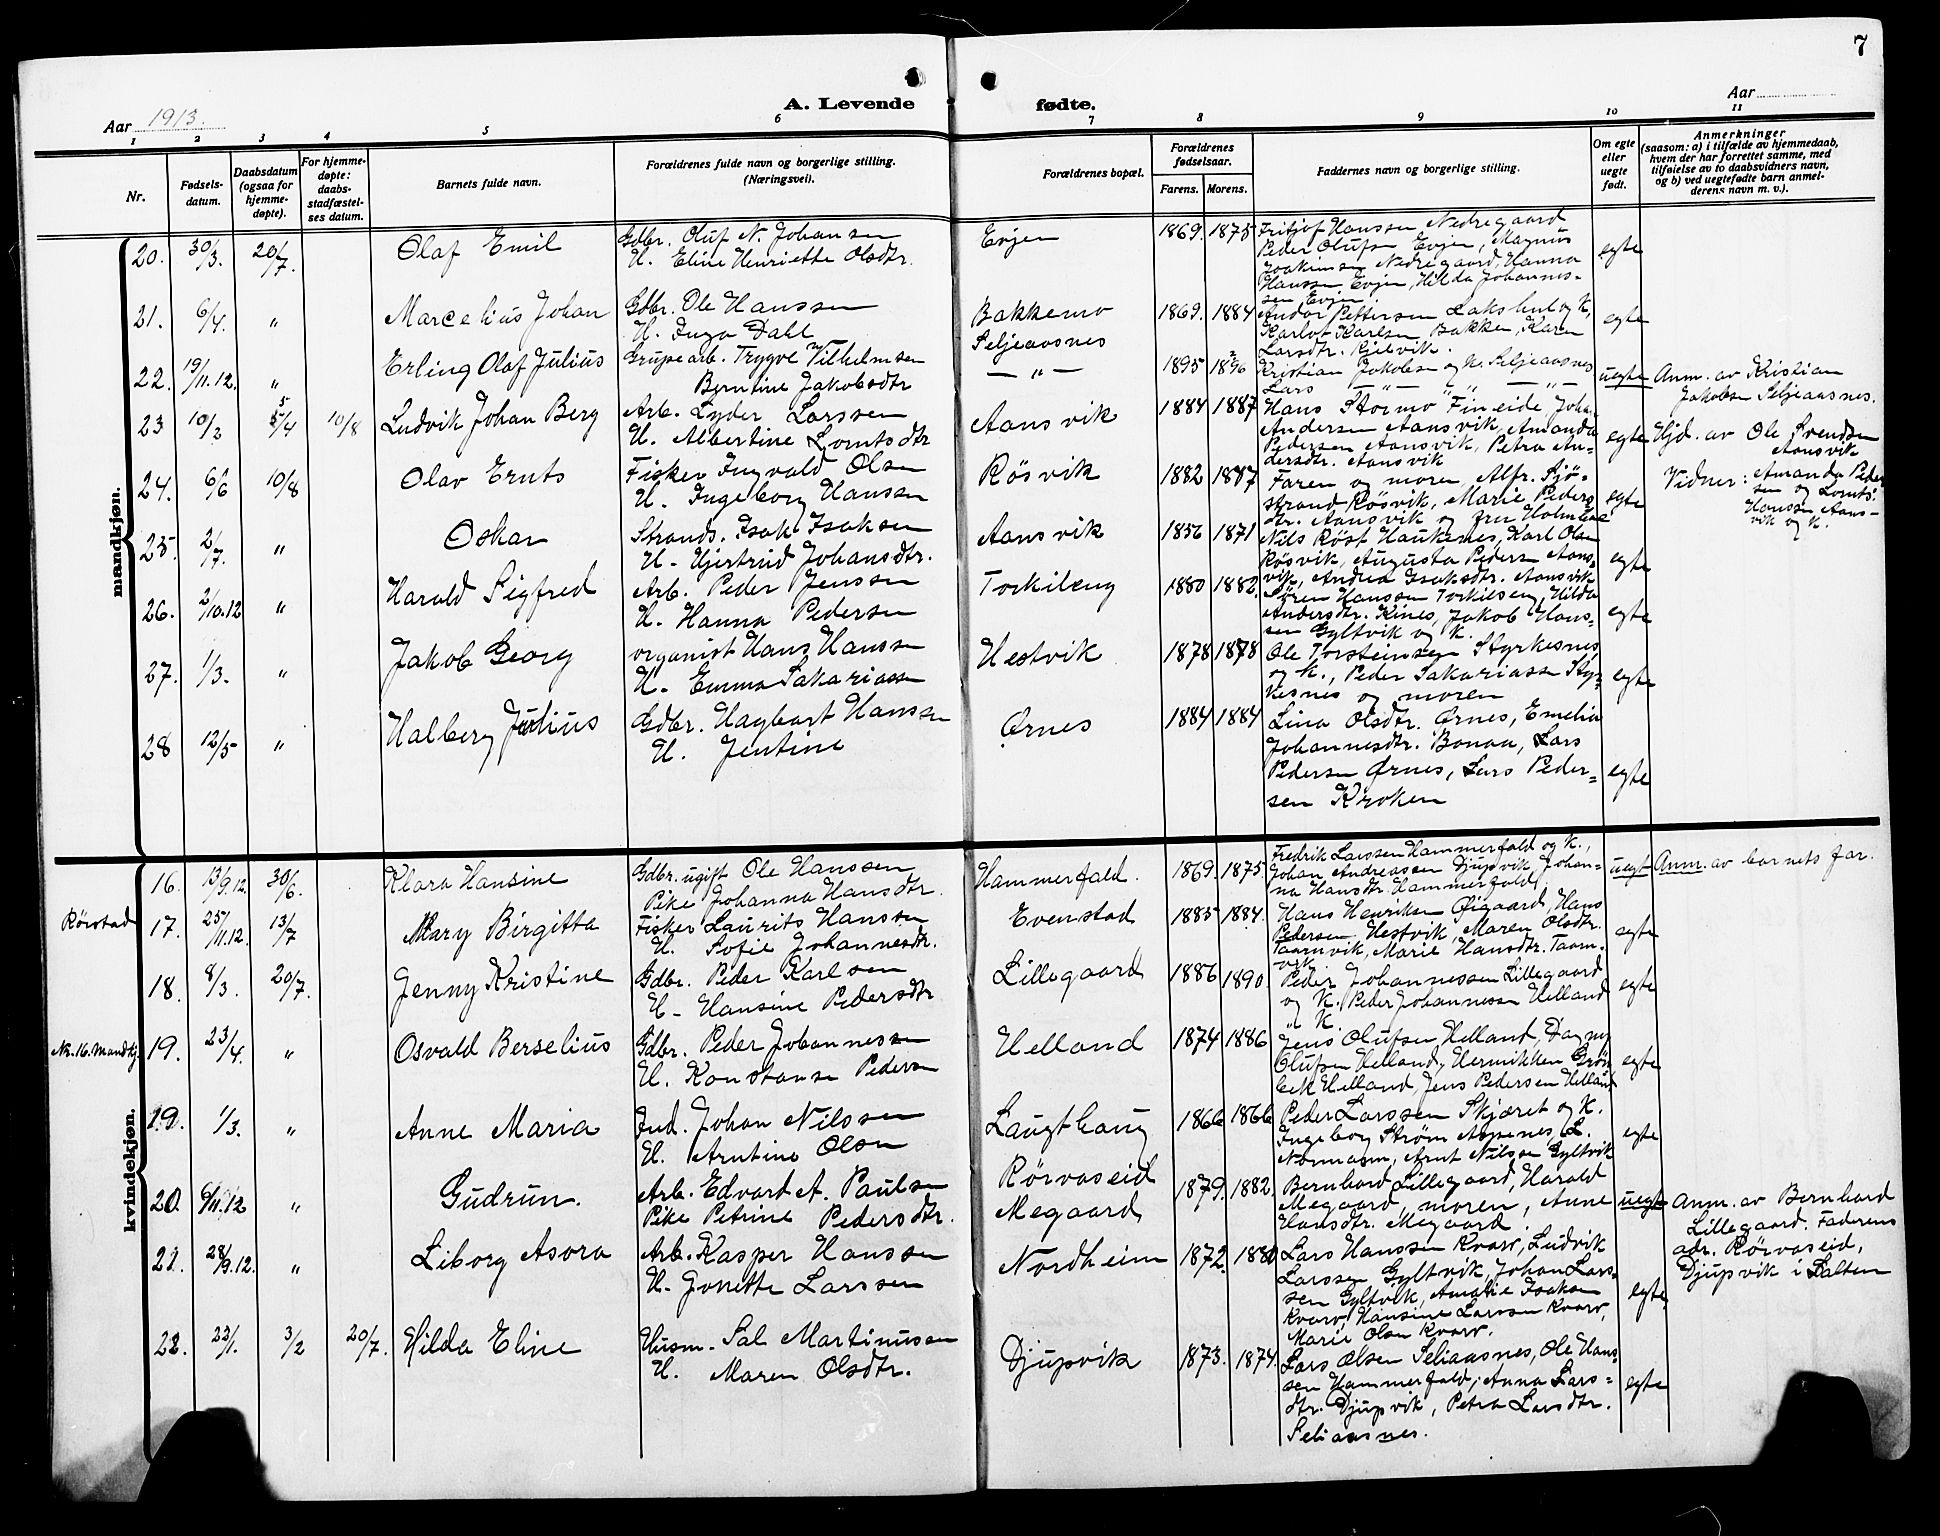 7
A. Levende fødte.
Aar 1913.
Aar
1 2 3 4 5 6 7 8 9 10 11
Nr.
Fødsels-
datum.
Daabsdatum
(ogsaa for
hjemme-
døpte).
For hjemme-
døpte:
daabs-
stadfæstel-
ses datum.
Barnets fulde navn.
Forældrenes fulde navn og borgerlige stilling.
(Næringsvei).
Forældrenes bopæl.
Forældrenes
fødselsaar.
Farens. Morens.
Faddernes navn og borgerlige stilling.
Om egte
eller
uegte
født.
Anmerkninger
(saasom: a) i tilfælde av hjemmedaab,
hvem der har forrettet samme, med
tilføielse av to daabsvidners navn,
og b) ved uegtefødte barn anmel-
derens navn m. v.).
mandkjøn.
20. 30/3. 20/7. Olaf Emil
Gdbr. Oluf N. Johansen
H. Eline Henriette Olsdtr.
Evjen 1869. 1875
Fritjof Hanssen Nedregaard
Peder Olufsen Evjen, Magnus
Joakimsen Nedregaard, Hanna
Hanssen Evjen, Hilda Johannes-
sen Evjen.
egte
21. 6/4. " Marcelius Johan
Gdbr. Ole Hanssen
H. Inga Dahl
Bakkemo 1869. 1884
Andor Pettersen Lakshul og K,
Karlot Karlsen Bakken, Karen
Larsdtr. Kjelvik.
egte
22. 19/11.12. " Erling Olaf Julius
Grupearb. Trygve Vilhelmsen
Berntine Jakobsdtr
Seljeaasnes
— " — 1895 1896
Kristian Jakobsen og K. Seljeaasnes
Lars — " — " — " —
uegte
Anm. av Kristian
Jakobsen Seljeaasnes.
23 10/2 5/4 10/8 Ludvik Johan Berg
Arb. Lyder Larssen
H. Albertine Lorntsdtr
Aansvik 1884 1887
Hans Stormo Fineide, Johan
Andersen Aansvik, Amanda
Pedersen Aansvik, Petra An-
dersdtr. Aansvik
egte
Hjd. av Ole Svendsen
Aansvik
Vidner: Amanda Peder
sen og Lornts
Hanssen Aans-
vik og K.
24. 6/6 10/8 Olav Ernts
Fisker Ingvald Olsen
H. Ingeborg Hanssen
Røsvik 1882 1887
Faren og moren, Alfr. Sjö-
strand Røsvik, Marie Peders
dtr. Aansvik og fru Holmboe
egte
25. 2/7. " Oskar
Strands. Isak Isaksen
H. Hjertrud Johansdtr.
Aansvik 1856 1871
Nils Røst Haukenes, Karl Olsen
Røsvik, Augusta Peders Aans-
vik, Andrea Isaksdtr. Aansvik
egte
26. 2/10.12 " Harald Sigfred
Arb. Peder Jenssen
H. Hanna Pedersen
Torkileng 1880 1882
Søren Hanssen Torkilseng, Hilda
Andersdtr. Kines, Jakob Hans-
sen Gyltvik og K.
egte
27. 1/3. " Jakob Georg
organist Hans Hanssen
H. Emma Sakariassen
Hestvik 1878 1878
Ole Torsteinsen Styrkesnes
og K., Peder Sakariassen Styr-
kesnes og moren
egte
28 12/5 " Halberg Julius
Gdbr. Hagbart Hanssen
H. Jentine
Ørnes 1884 1884
Lina Olsdtr. Ørnes, Emelia
Johannesdtr. Bonaa, Lars
Pedersen Ørnes, Lars Peder-
sen Kroken
egte
kvindekjøn.
16. 13/9.12. 30/6. Klara Hansine
Gdbr. ugift Ole Hanssen
Pike Johanna Hansdtr.
Hammerfald. 1869. 1875
Fredrik Larssen Hammerfald og K.,
Johan Andreassen Djupvik, Johan-
na Hansdtr. Hammerfald
uegt
Anm. av barnets far.
Rørstad 17. 25/11.12. 13/7 Mary Birgitta
Fisker Laurits Hanssen
H. Sofie Johannesdtr.
Evenstad 1885 1884.
Hans Henriksen Øigaard, Hans
Pedersen Hestvik, Maren Olsdtr.
Taarnvik, Marie Hansdtr. Taarn-
vik
egte
18. 8/3. 20/7. Jenny Kristine
Gdbr. Peder Karlsen
H. Hansine Pedersdtr
Lillegaard 1886 1890
Peder Johannessen Lillegaard
og K. Peder Johannessen Helland
" K.
egte
Nr. 16. Mandkj. 19. 23/4. " Osvald Berselius
Gdbr. Peder Johannessen
H. Konstanse Pedersen
Helland 1874 1886
Jens Olufsen Helland, Dagny
Olufsen Helland, Hermikken Grøn
bek Helland, Jens Pedersen Helland
egte
19. 1/3. " Anne Maria
Ind. Johan Nilssen
H. Arntine Olsen
Laugthaug 1866 1866
Peder Larssen Skjæret og K.
Ingeborg Strøm Aspenes, L.
Normann, Arnt Nilssen Gyltvik
egte
20. 6/11.12 " Gudrun.
Arb. Edvard A. Paulsen
Pike Petrine Pedersdtr.
Rørvaseid
Megaard 1879. 1882
Bernhard Lillegaard, Harald
Megaard, moren, Anne
Hansdtr. Megaard
uegt
Anm. av Bernhard
Lillegaard. Faderens
adr. Rørvaseid,
Djupvik i Salten
21. 28/9.12. " Liborg Asora
Arb. Kasper Hanssen
H. Jonette Larssen
Nordheim 1872. 1880
Lars Hanssen Kvarv, Ludvik
Larssen Gyltvik, Johan Lars-
sen Gyltvik, Amalie Isaksen
Kvarv, Hansine Larssen Kvarv,
Marie Olsen Kvarv.
egte
22. 22/1. 3/2 20/7. Hilda Eline
Husm. Sal Martinussen
H. Maren Olsdtr.
Djupvik 1873. 1874.
Lars Olsen Seliaasnes, Ole Hans-
sen Hammerfald, Anna Lars-
dtr. Djupvik, Petra Larsdtr.
Seliaasnes.
egte